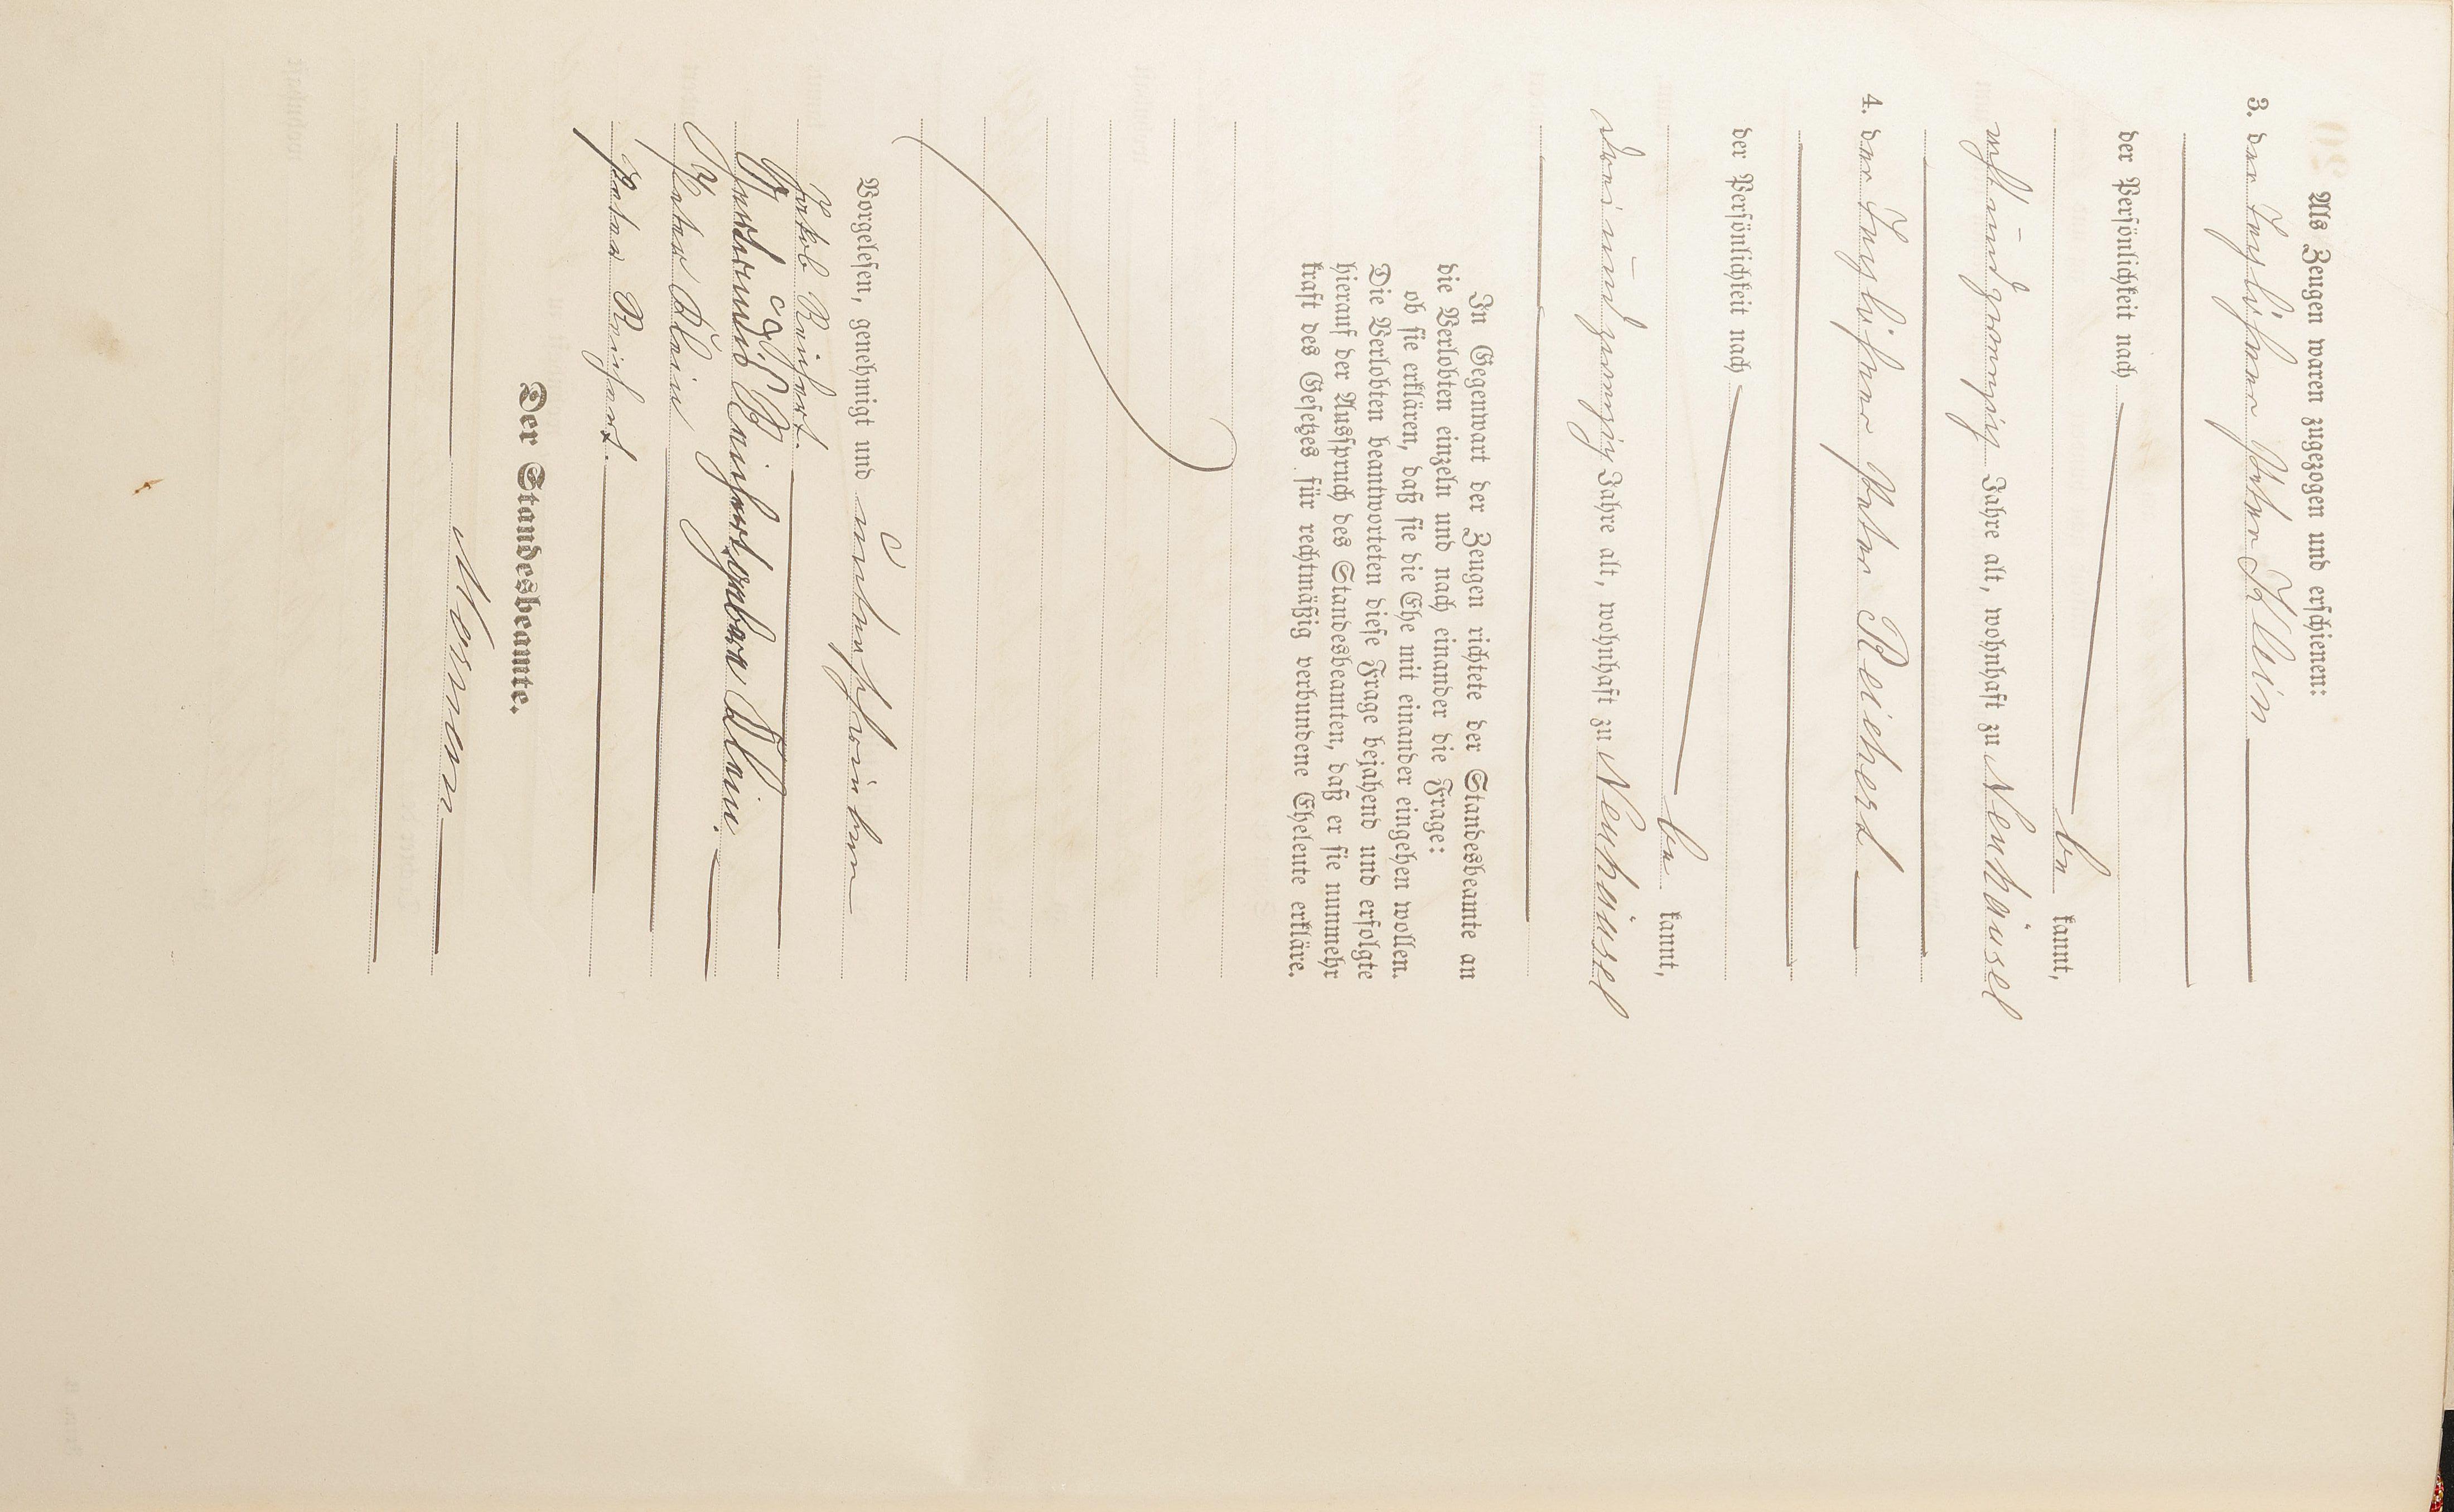 Als Zeugen waren zugezogen und erschienen:
3. der Taglöhner Peter Klein
der Persönlichkeit nach
be kannt,
acht und zwanzig Jahre alt, wohnhaft zu Neuhäusel
4. der Taglöhner Peter Reichert
der Persönlichkeit nach
be kannt,
drei und zwanzig Jahre alt, wohnhaft zu Neuhäusel
In Gegenwart der Zeugen richtete der Standesbeamte an
die Verlobten einzeln und nach einander die Frage:
ob sie erklären, daß sie die Ehe mit einander eingehen wollen.
Die Verlobten beantworteten diese Frage bejahend und erfolgte
hierauf der Ausspruch des Standesbeamten, daß er sie nunmehr
kraft des Gesetzes für rechtmäßig verbundene Eheleute erkläre.
Vorgelesen, genehmigt und unterschrieben
Jakob Reichert.
Reichert geborn Klein.
Peter Klein
Peter Reichert.
Der Standesbeamte.